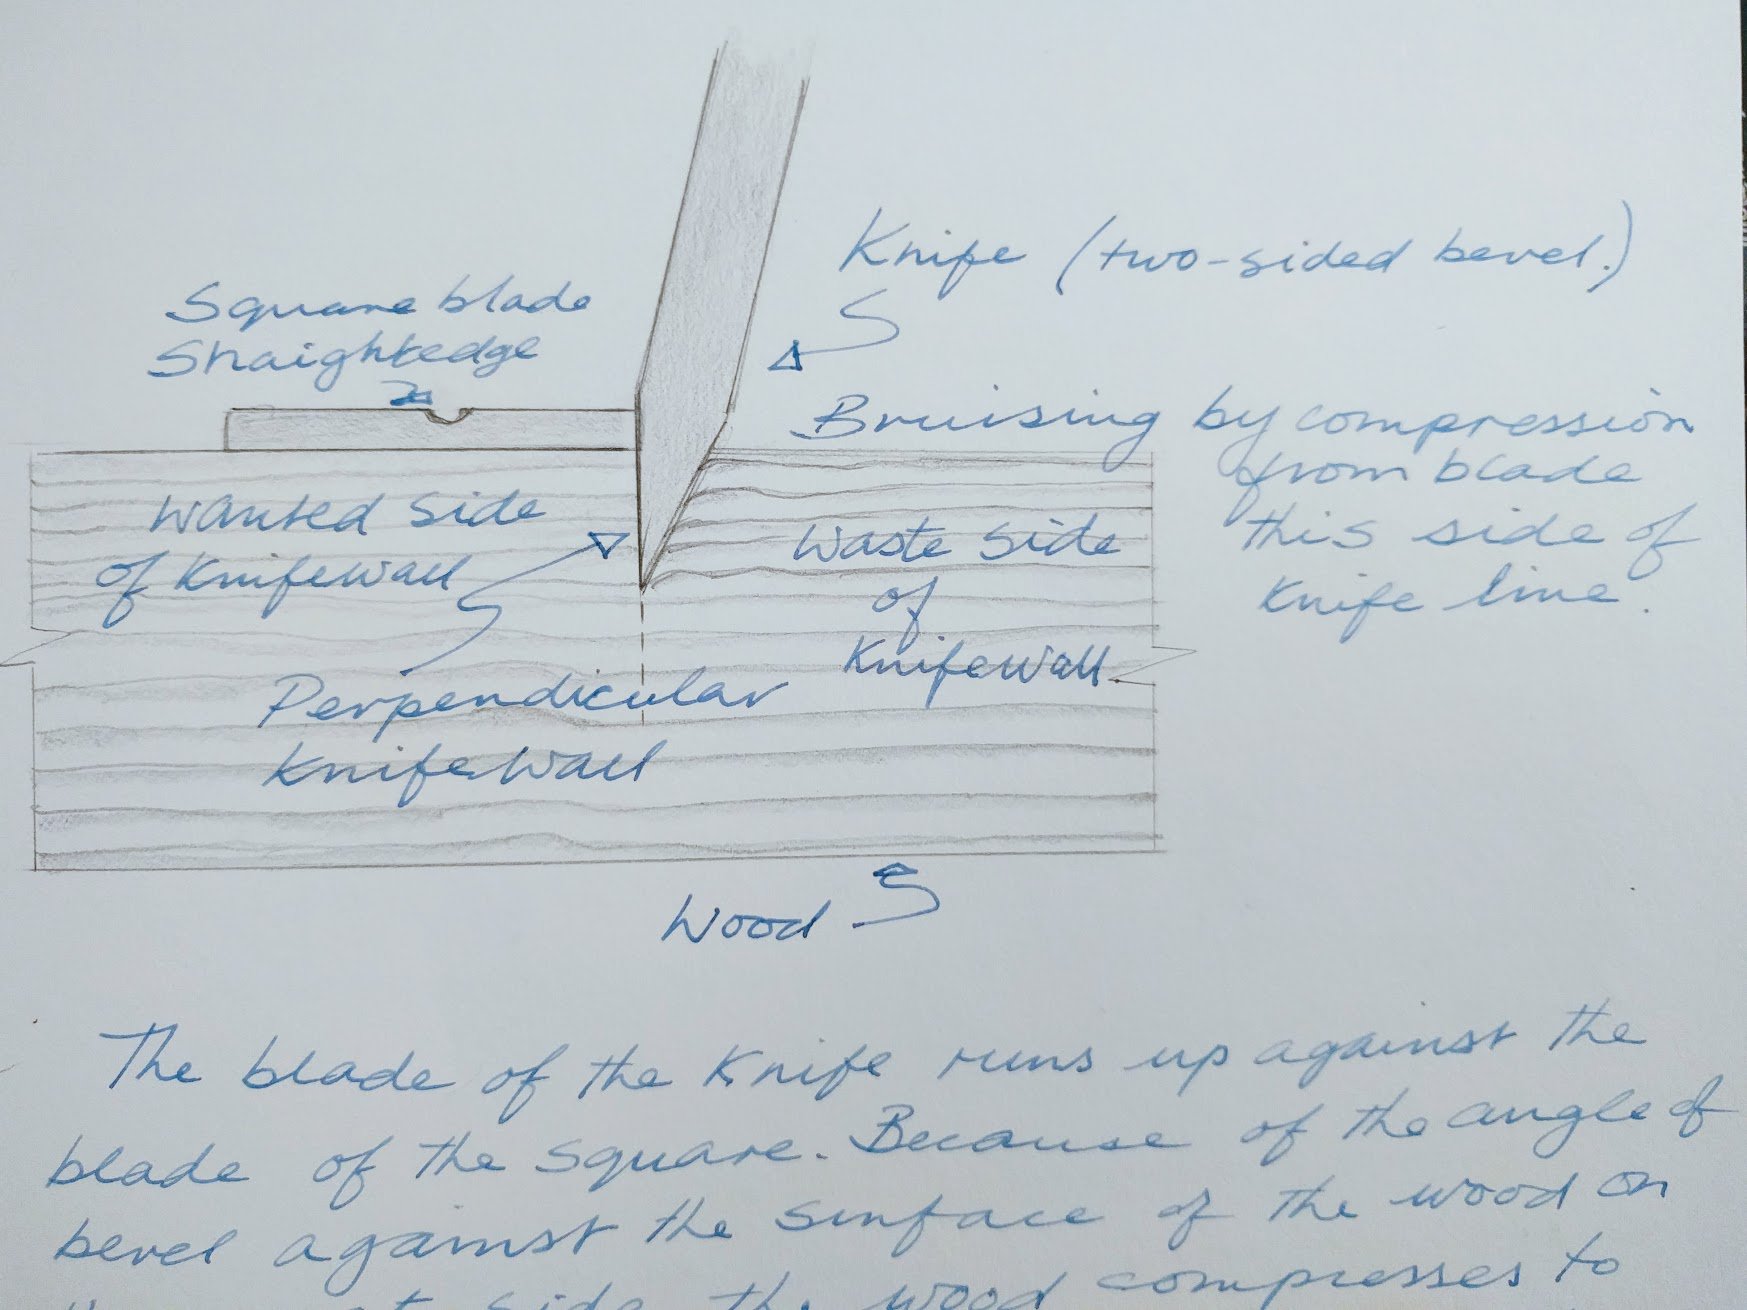 Knife (two-sided bevel.)
Square blade
Straightedge
Bruising by compression
from blade
this side of
Knife line.
Wanted side
of Knifewall
Waste side
of
Knifewall
Perpendicular
Knifewall
Wood
The blade of the Knife runs up against the
blade of the square. Because of the angle of
bevel against the surface of the wood on
side the wood compresses to